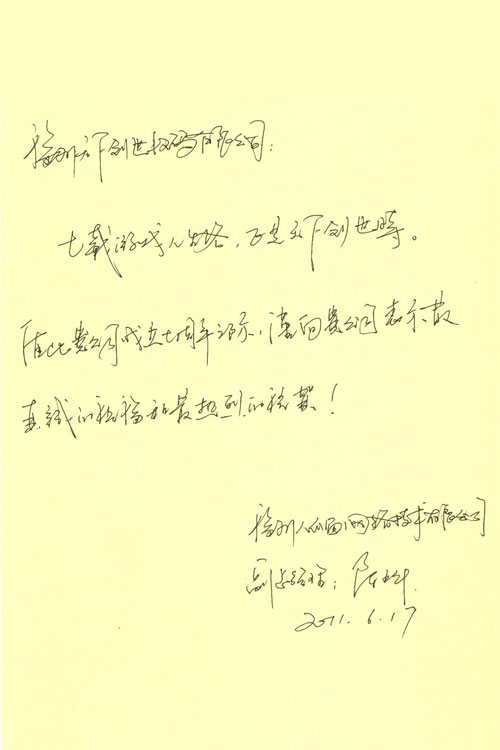 福州天下创世数码有限公司:
七载游戏人生路,正是天下创世时。
值此贵公司成立七周年之际,谨向贵公司表示最
真诚的祝福和最热烈的祝贺!
福州人人通网络技术有限公司
副总经理:陈
2011.6.17